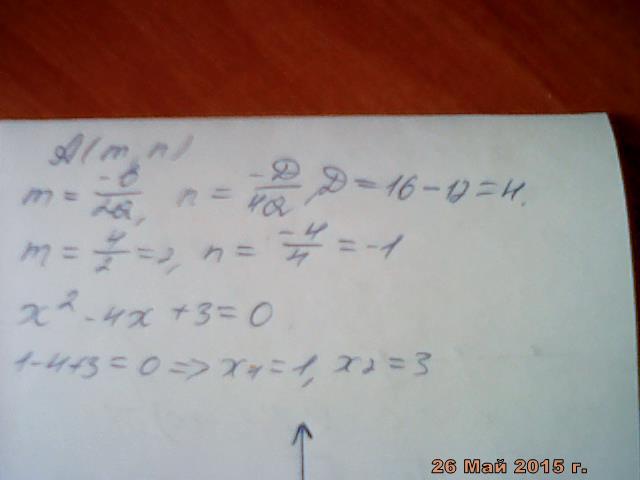 A(m, n)
m = -b/2a, n = -D/4a, D = 16 - 12 = 4.
m = 4/2 = 2, n = -4/4 = -1
x² - 4x + 3 = 0
1 - 4 + 3 = 0 => x₁ = 1, x₂ = 3
26 Май 2015 г.